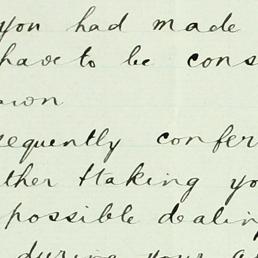 you had made
have to be cons
sequently confer
ther taking yo
possible dealin
during your a